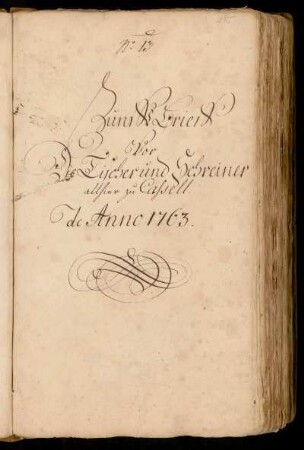 No 13
Zunft Brief
Vor
Die Tischer und Schreiner
allhier zu Cassell
de Anno 1763.